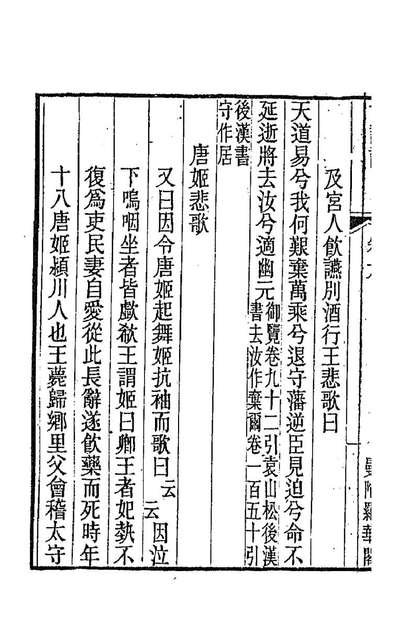 曼陀羅華閣
及宮人飲讌別酒行王悲歌曰
天道易兮我何艱棄萬乘兮退守藩逆臣見迫兮命不
延逝將去汝兮適幽元御覽卷九十二引袁山松後漢
書去汝作棄爾卷一百五十引
後漢書
守作居
唐姬悲歌
又曰因令唐姬起舞姬抗袖而歌曰云云因泣
下嗚咽坐者皆歔欷王謂姬曰卿王者妃埶不
復爲吏民妻自愛從此長辭遂飲藥而死時年
十八唐姬潁川人也王薨歸鄉里父會稽太守